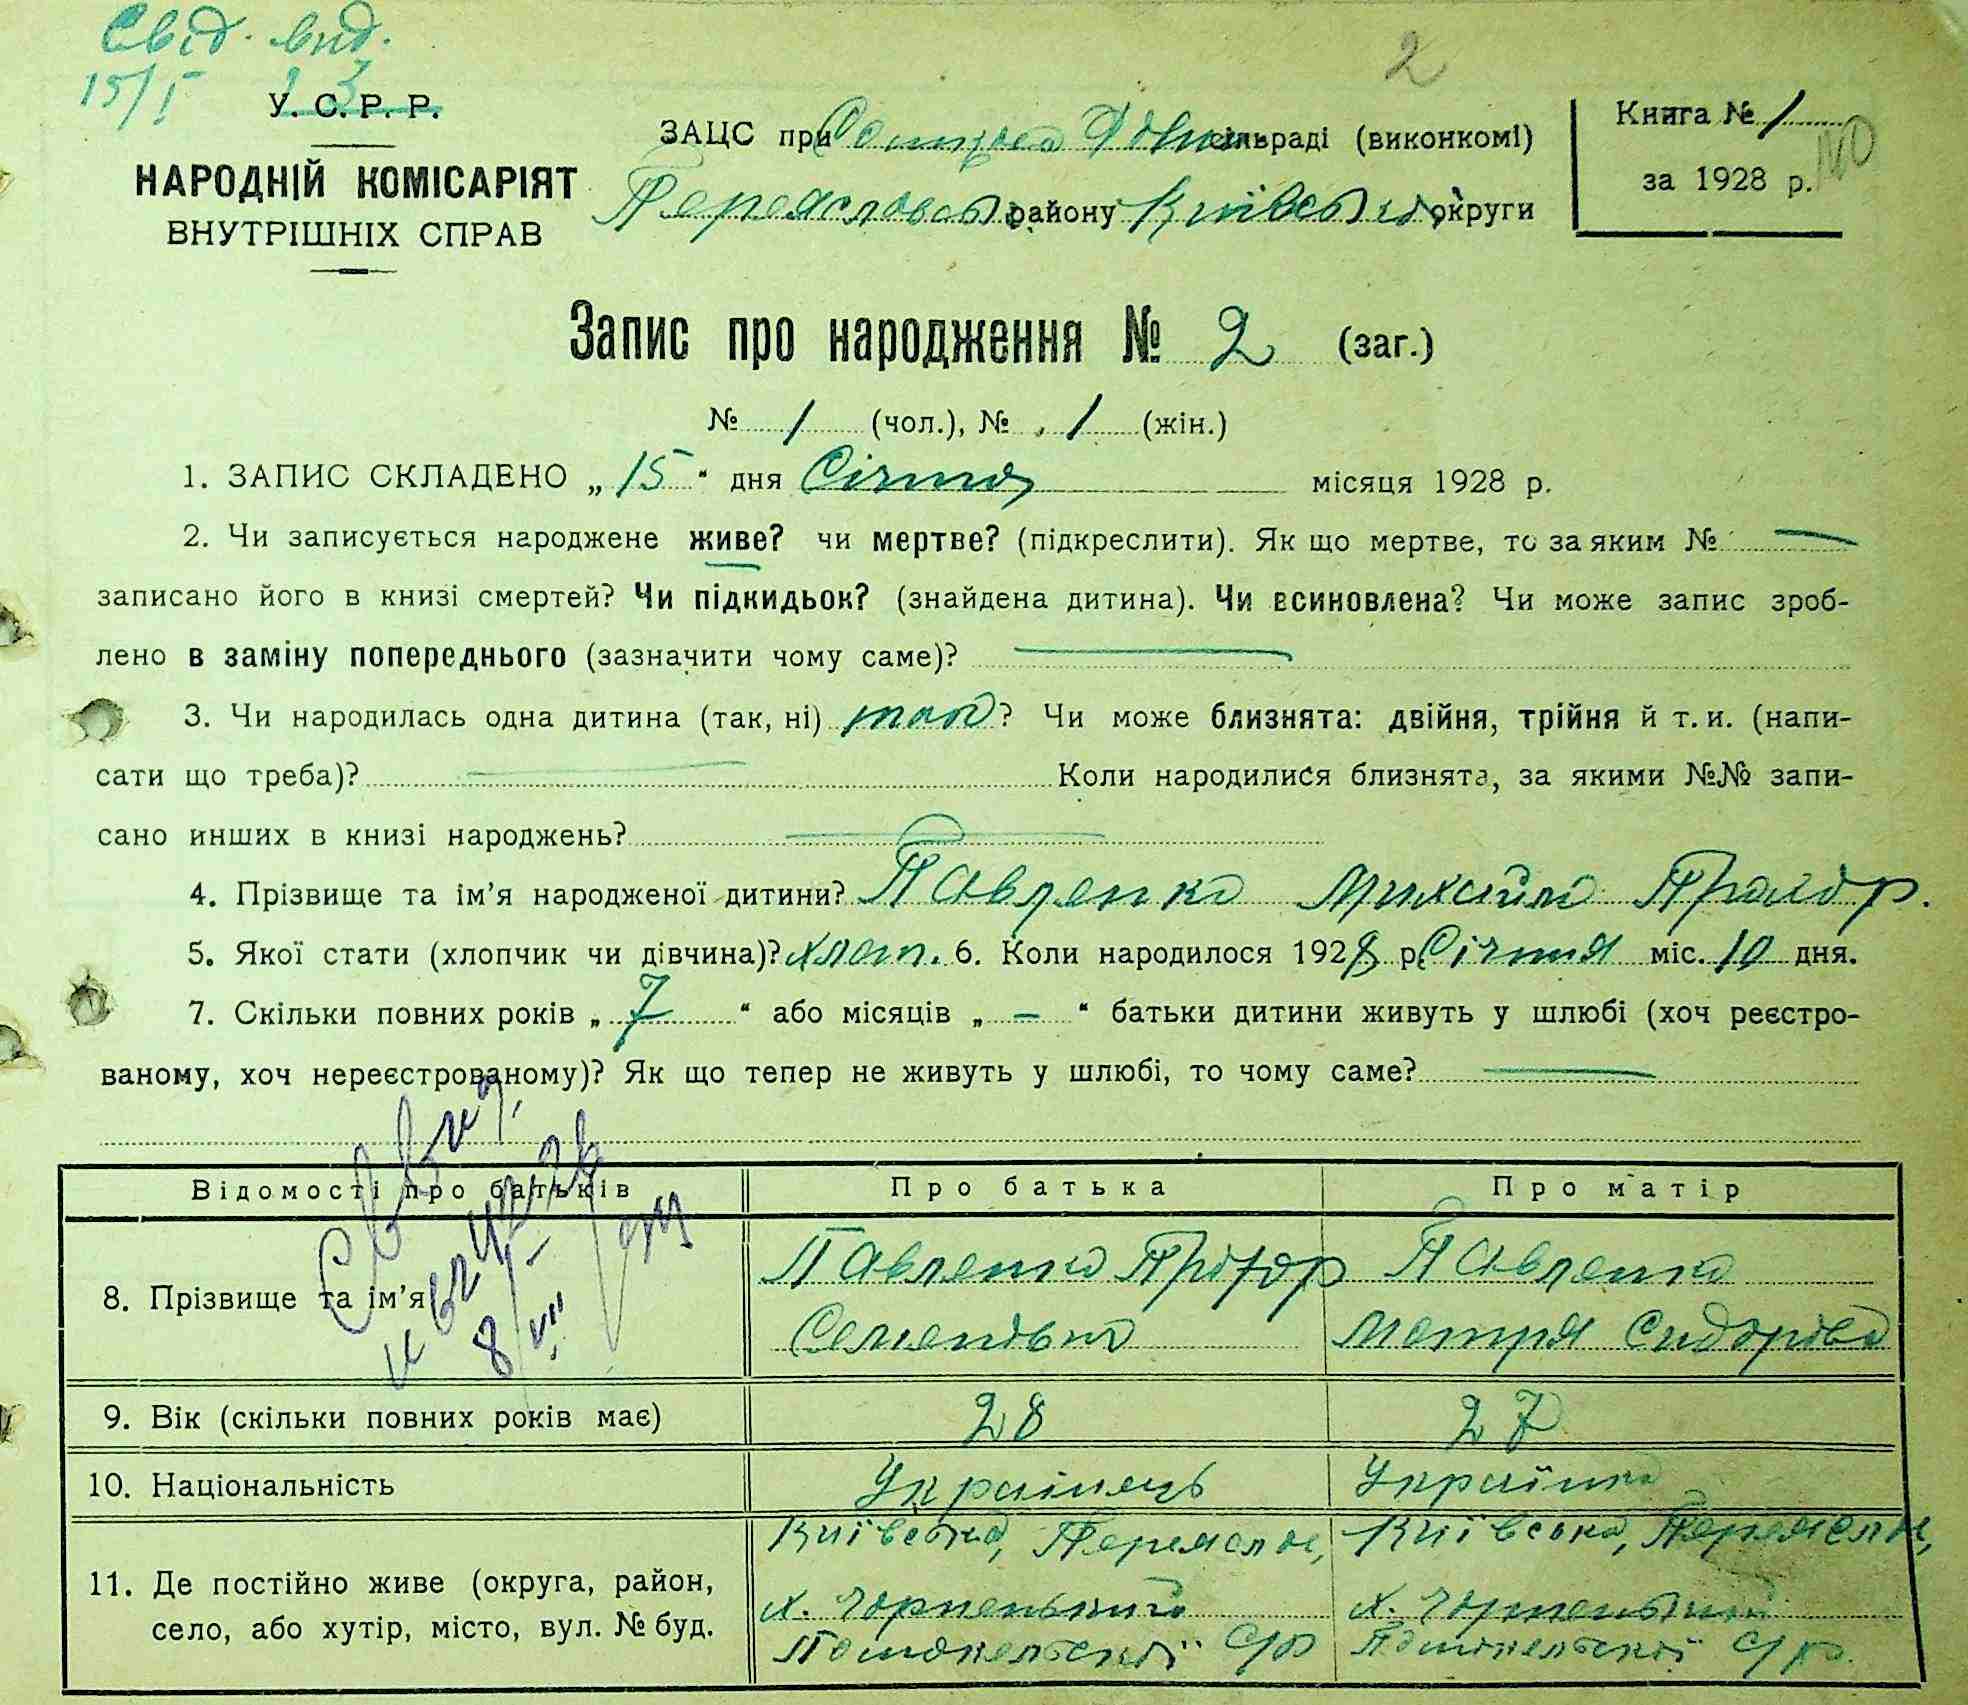 Свід. вид.
15/I
2
У. С. Р. Р.
НАРОДНІЙ КОМІСАРІЯТ
ВНУТРІШНІХ СПРАВ
ЗАЦС при сільраді (виконкомі)
Переяславськ. району Київської округи
Книга № 1
за 1928 р.
Запис про народження № 2 (заг.)
№ 1 (чол.), № 1 (жін.)
1. ЗАПИС СКЛАДЕНО „ 15 “ дня Січня місяця 1928 р.
2. Чи записується народжене живе? чи мертве? (підкреслити). Як що мертве, то за яким № —
записано його в книзі смертей? Чи підкидьок? (знайдена дитина). Чи всиновлена? Чи може запис зроб-
лено в заміну попереднього (зазначити чому саме)? —
3. Чи народилась одна дитина (так, ні) так? Чи може близнята: двійня, трійня й т. и. (напи-
сати що треба)? — Коли народилися близнята, за якими №№ запи-
сано инших в книзі народжень? —
4. Прізвище та ім'я народженої дитини? Павленко Михайло
5. Якої стати (хлопчик чи дівчина)? хлоп. 6. Коли народилося 1928 р. Січня міс. 10 дня.
7. Скільки повних років „ 7 “ або місяців „ — “ батьки дитини живуть у шлюбі (хоч реєстро-
ваному, хоч нереєстрованому)? Як що тепер не живуть у шлюбі, то чому саме? —
Відомості про батьків Про батька Про матір
8. Прізвище та ім'я
Павленко
Павленко
Мотря Сидорівна
9. Вік (скільки повних років має) 28 27
10. Національність Українець Українка
11. Де постійно живе (округа, район,
село, або хутір, місто, вул. № буд.
Київська, Переяслн,
х. Чорненький
С/р
Київська, Переяслн,
х. Чорненький
С/р.